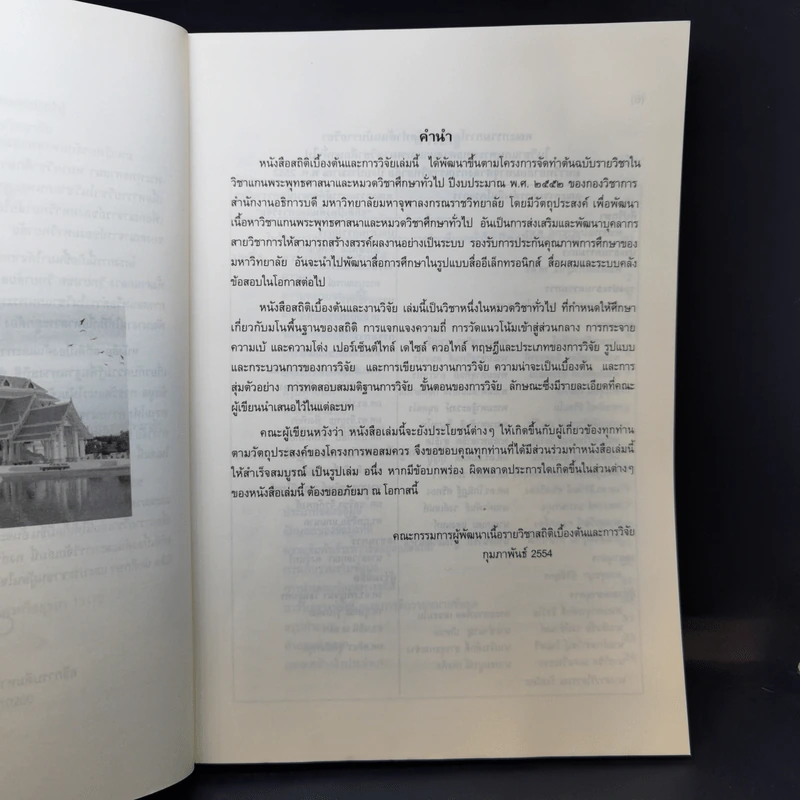 คำนำ
หนังสือสถิติเบื้องต้นและการวิจัยเล่มนี้ ได้พัฒนาขึ้นตามโครงการจัดทำต้นฉบับรายวิชาใน
วิชาแกนพระพุทธศาสนาและหมวดวิชาศึกษาทั่วไป ปีงบประมาณ พ.ศ. ๒๕๕๒ ของกองวิชาการ
สำนักงานอธิการบดี มหาวิทยาลัยมหาจุฬาลงกรณราชวิทยาลัย โดยมีวัตถุประสงค์ เพื่อพัฒนา
เนื้อหาวิชาแกนพระพุทธศาสนาและหมวดวิชาศึกษาทั่วไป อันเป็นการส่งเสริมและพัฒนาบุคลากร
สายวิชาการให้สามารถสร้างสรรค์ผลงานอย่างเป็นระบบ รองรับการประกันคุณภาพการศึกษาของ
มหาวิทยาลัย อันจะนำไปพัฒนาสื่อการศึกษาในรูปแบบสื่ออีเล็กทรอนิกส์ สื่อผสมและระบบคลัง
ข้อสอบในโอกาสต่อไป
หนังสือสถิติเบื้องต้นและงานวิจัย เล่มนี้เป็นวิชาหนึ่งในหมวดวิชาทั่วไป ที่กำหนดให้ศึกษา
เกี่ยวกับมโนพื้นฐานของสถิติ การแจกแจงความถี่ การวัดแนวโน้มเข้าสู่ส่วนกลาง การกระจาย
ความเบ้ และความโด่ง เปอร์เซ็นต์ไทล์ เดไซล์ ควอไทล์ ทฤษฎีและประเภทของการวิจัย รูปแบบ
และกระบวนการของการวิจัย และการเขียนรายงานการวิจัย ความน่าจะเป็นเบื้องต้น และการ
สุ่มตัวอย่าง การทดสอบสมมติฐานการวิจัย ขั้นตอนของการวิจัย ลักษณะซึ่งมีรายละเอียดที่คณะ
ผู้เขียนนำเสนอไว้ในแต่ละบท
คณะผู้เขียนหวังว่า หนังสือเล่มนี้จะยังประโยชน์ต่างๆ ให้เกิดขึ้นกับผู้เกี่ยวข้องทุกท่าน
ตามวัตถุประสงค์ของโครงการพอสมควร จึงขอขอบคุณทุกท่านที่ได้มีส่วนร่วมทำหนังสือเล่มนี้
ให้สำเร็จสมบูรณ์ เป็นรูปเล่ม อนึ่ง หากมีข้อบกพร่อง ผิดพลาดประการใดเกิดขึ้นในส่วนต่างๆ
ของหนังสือเล่มนี้ ต้องขออภัยมา ณ โอกาสนี้
คณะกรรมการผู้พัฒนาเนื้อรายวิชาสถิติเบื้องต้นและการวิจัย
กุมภาพันธ์ 2554